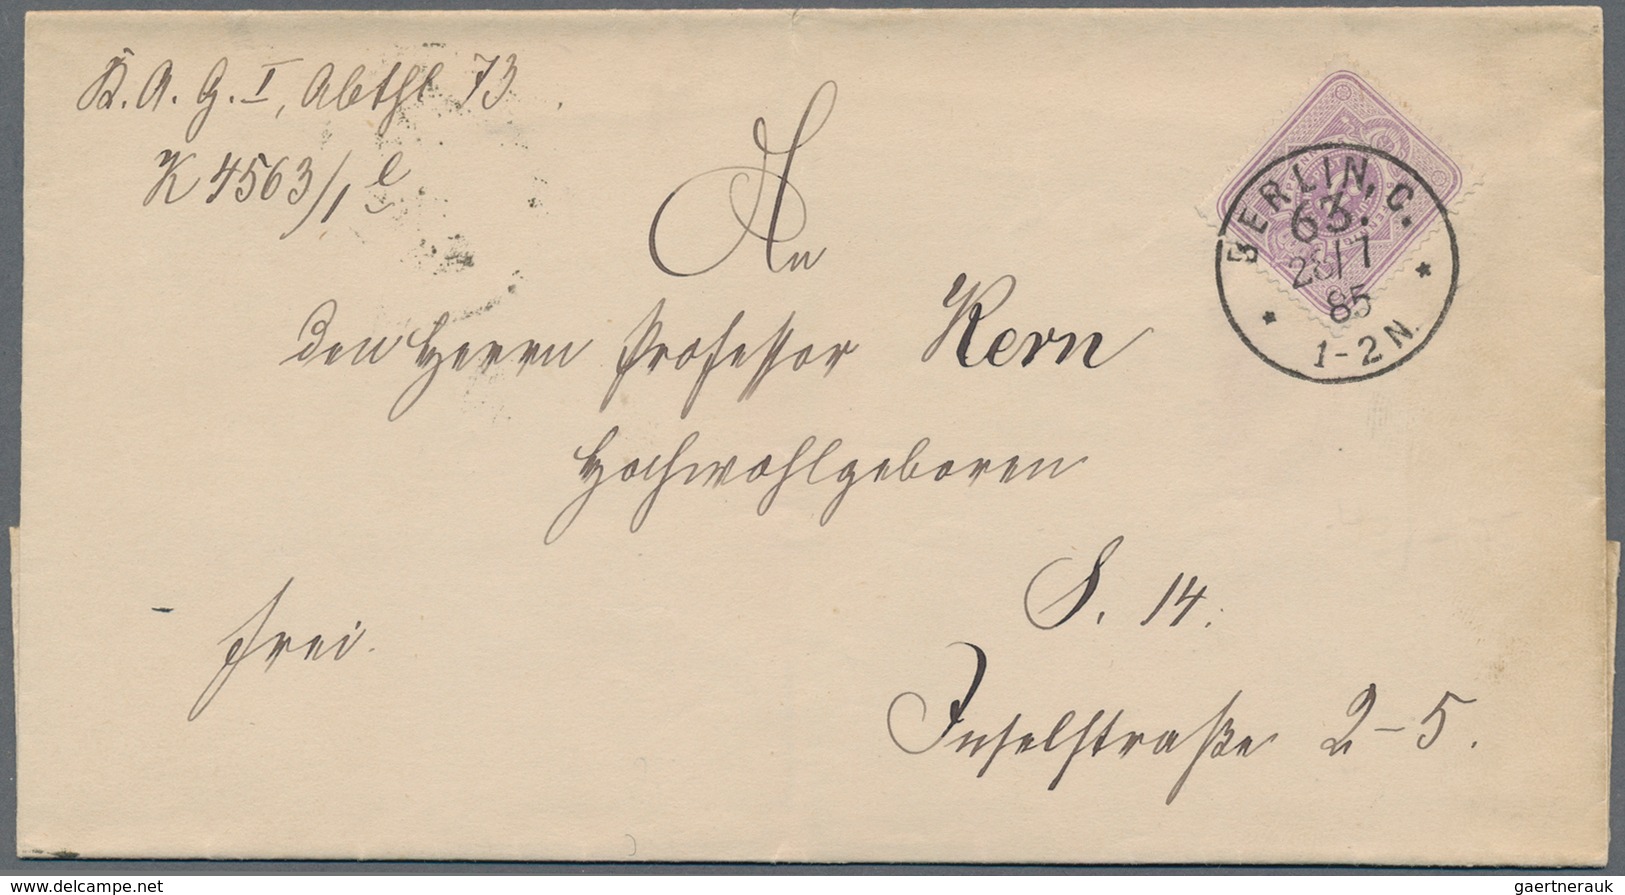 K. A. G. I, Abthl 73.
K 4563/1 e
An
den Herrn Professor Kern
Hochwohlgeboren
S. 14.
frei.
Inselstraße 2-5.
BERLIN, C.
63.
28/7
85
1-2 N.
www.delcampe.net
gaertnerauk